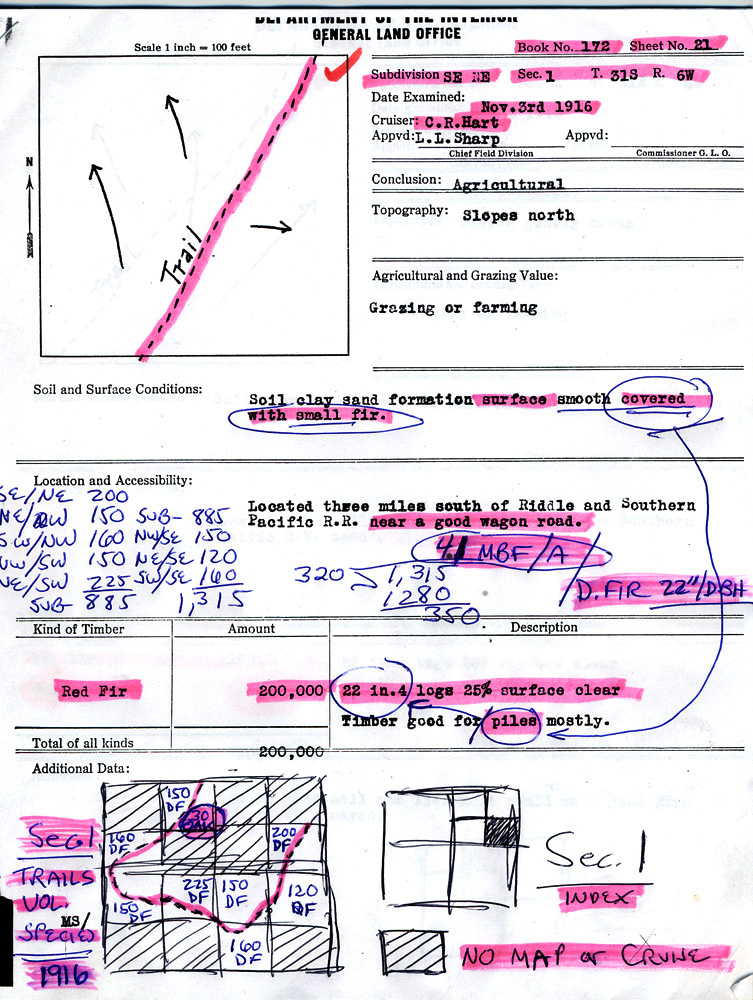 DEPARTMENT OF THE INTERIOR
GENERAL LAND OFFICE
Scale 1 inch = 100 feet
Book No. 172 Sheet No. 21
Subdivision SE NE Sec. 1 T. 31S R. 6W
Date Examined: Nov. 3rd 1916
Cruiser: C.R.Hart
Appvd: L.L.Sharp Appvd:
Chief Field Division Commissioner G. L. O.
N
Trail
Conclusion: Agricultural
Topography: Slopes north
Agricultural and Grazing Value:
Grazing or farming
Soil and Surface Conditions:
Soil clay sand formation surface smooth covered
with small fir.
Location and Accessibility:
Located three miles south of Riddle and Southern
Pacific R.R. near a good wagon road.
SE/NE 200
NE/NW 150 SUB- 885
SW/NW 160 NW/SE 150
NW/SW 150 NE/SE 120
NE/SW 225 SW/SE 160
SUB- 885 1,315
4.1 MBF/A
320 1,315
1280
350
D. FIR 22"/DBH
Kind of Timber Amount Description
Red Fir 200,000 22 in. 4 logs 25% surface clear
Timber good for piles mostly.
Total of all kinds 200,000
Additional Data:
Sec 1
TRAILS
VOL.
MS/
SPECIES
1916
150 DF
30 OAK
160 DF
200 DF
225 DF
150 DF
120 DF
150 DF
160 DF
Sec. 1
INDEX
NO MAP or CRUISE